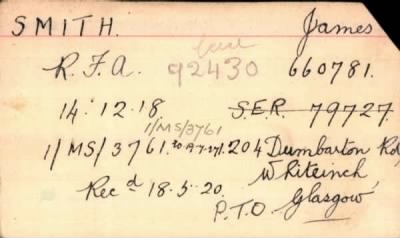 SMITH. James
R.F.A. 92430 660781.
14.12.18 S.E.R. 79727.
1/MS/3761
1/MS/3761. 204 Dumbarton Rd,
Whiteinch
Recd 18.5.20. Glasgow
P.T.O.